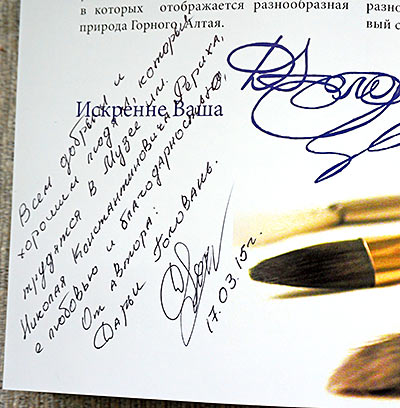 в которых отображается разнообразная
природа Горного Алтая.
разно
вый с
Искренне Ваша
Всем добрым и
хорошим людям, которые
трудятся в Музее им.
Николая Константиновича Рериха,
с любовью и благодарностью,
От автора:
Дарьи Головань.
17.03.15г.